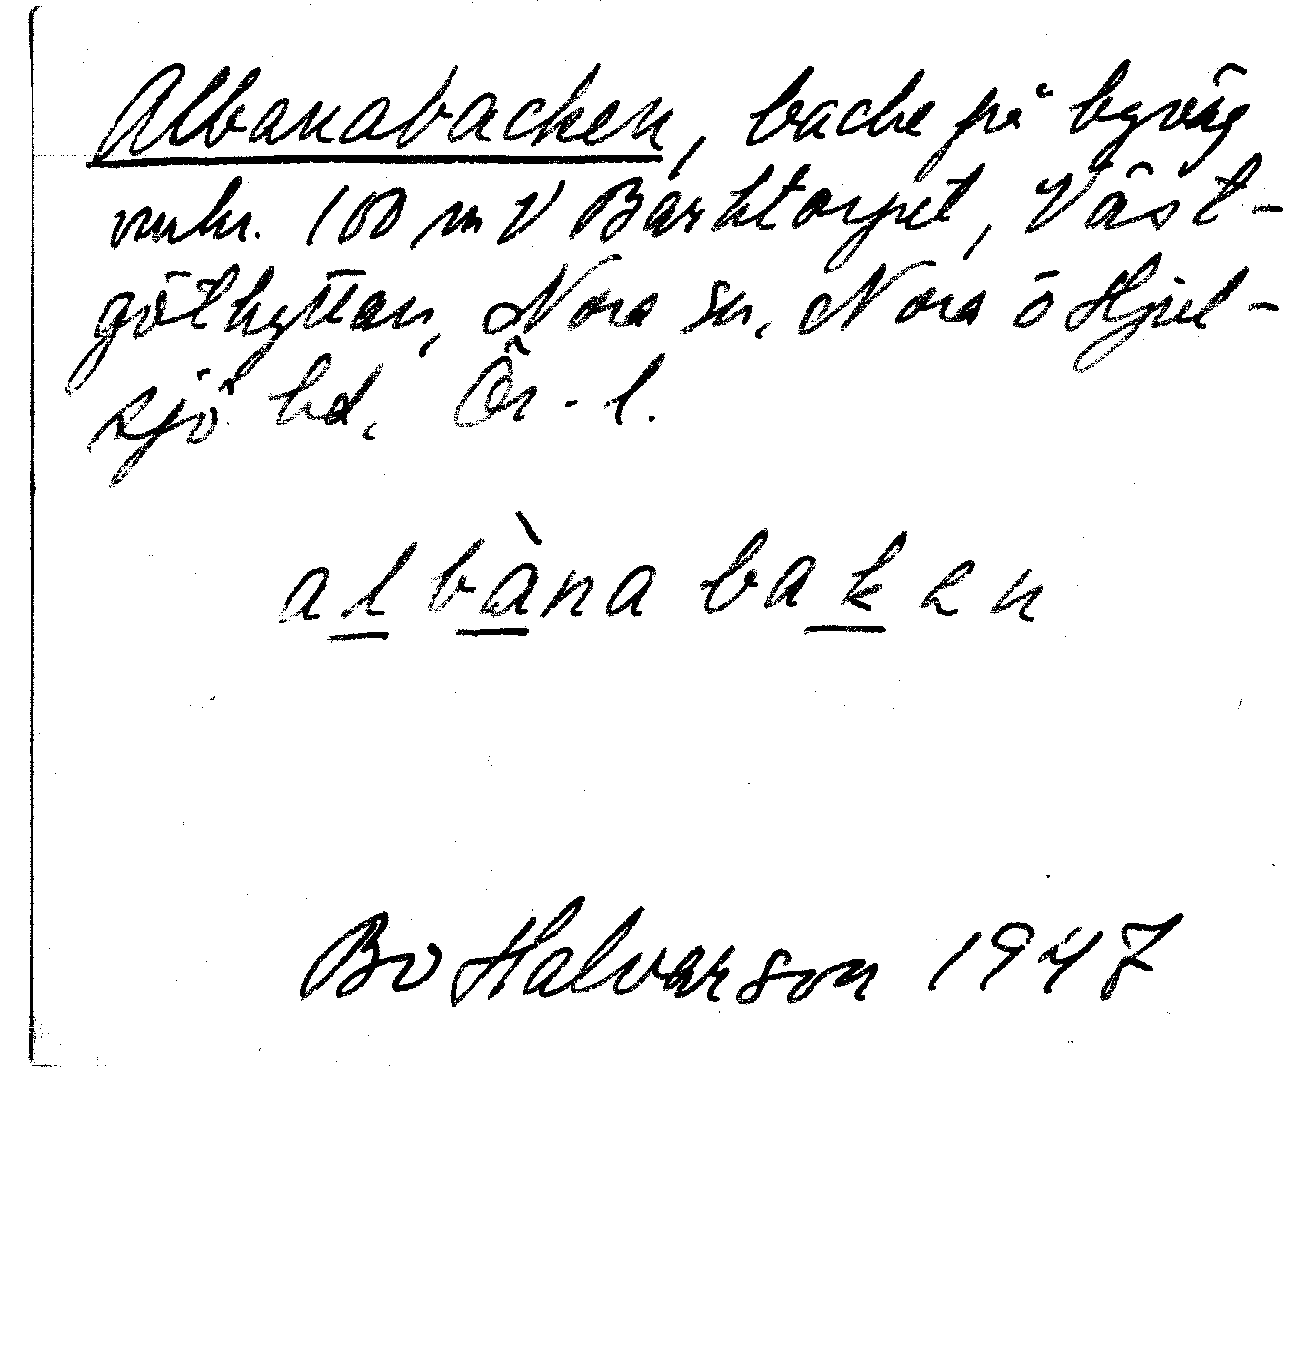 Albanabacken, backe på byväg
omkr. 100 m V Barktorpet, Väst-
göthyttan, Nora sn. Nora o Hjul-
sjö hd. Ör. l.
albànabaken
Bo Halvarson 1947